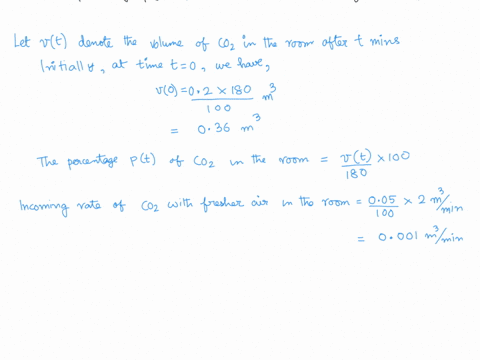 Let v(t) denote the volume of CO2 in the room after t mins
Initially, at time t=0, we have,
v(0) = 0.2 × 180 / 100 m^3
= 0.36 m^3
The percentage P(t) of CO2 in the room = v(t)/180 × 100
Incoming rate of CO2 with fresher air in the room = 0.05/100 × 2 m^3/min
= 0.001 m^3/min